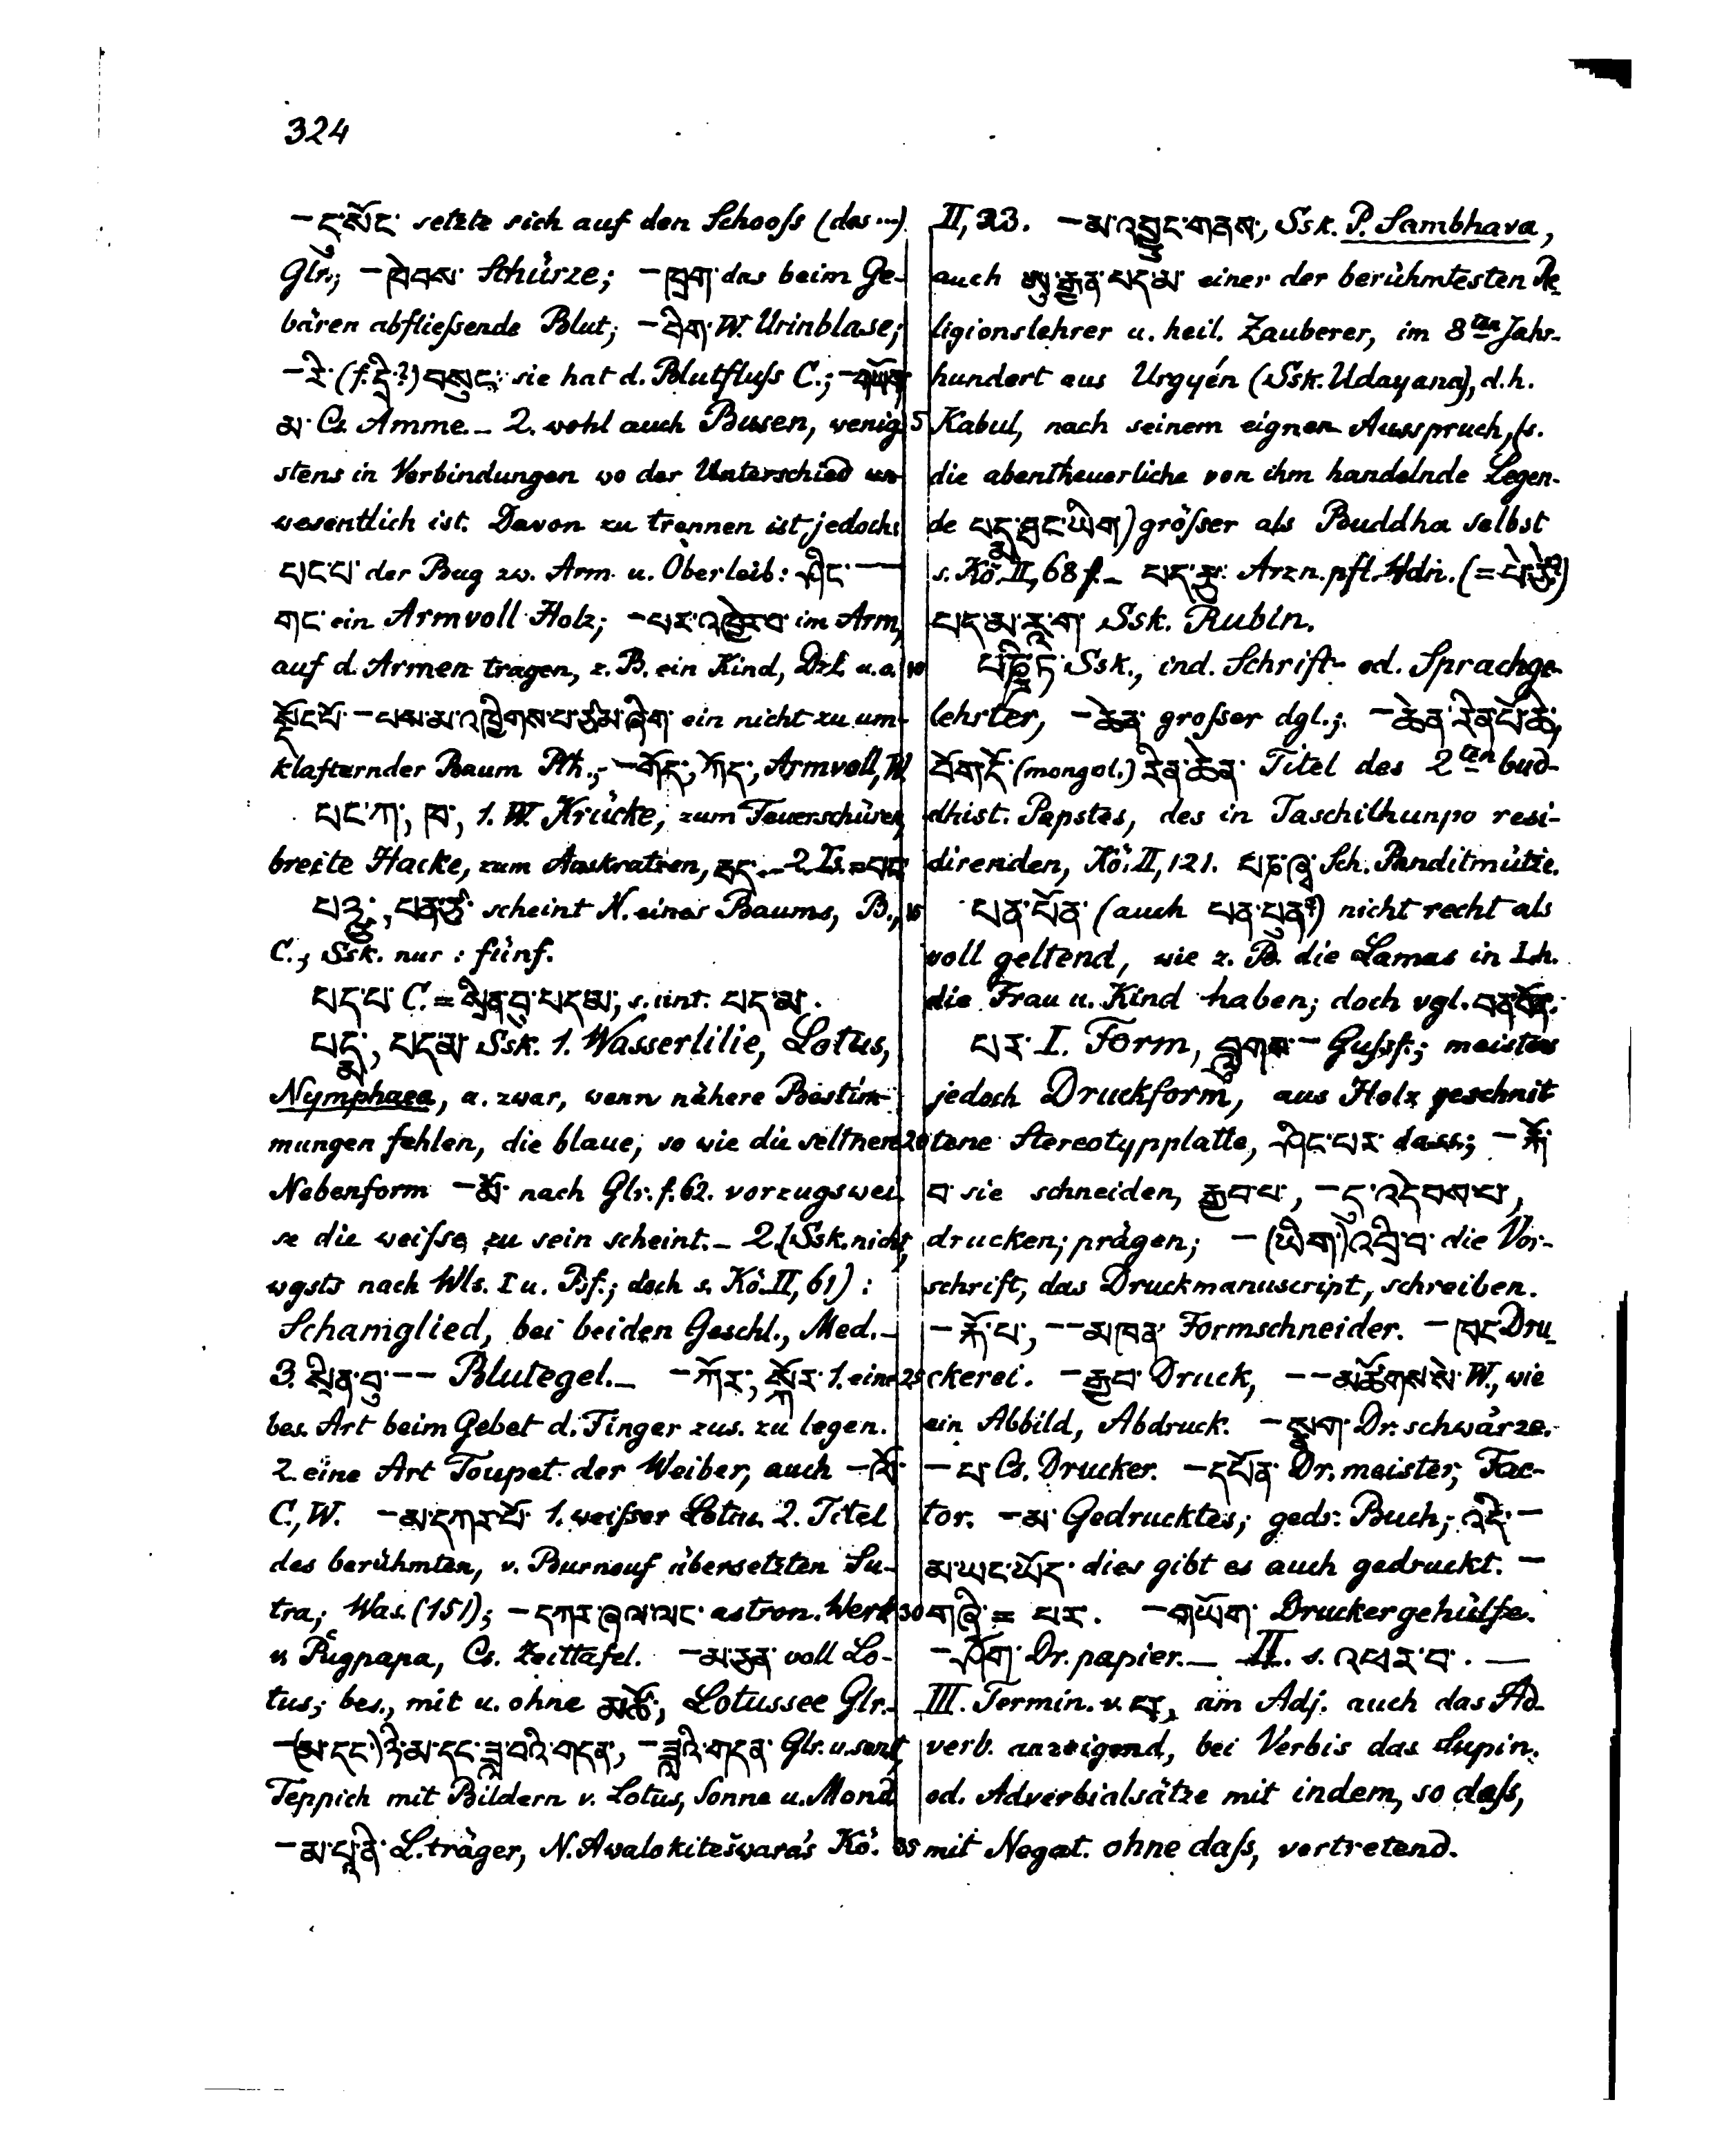 324
—དུ་སོང་ setzte sich auf den Schooſs (des ...)
Glr.; —ཁེབས་ Schürze; —ཁྲག་ das beim Ge-
bären abflieſsende Blut; — W. Urinblase;
—རེ་ (f. དྲི་?) བསྲུང་ sie hat d. Blutfluſs C.; —གཡོག་
མ་ Cs. Amme. — 2. wohl auch Busen, wenig
stens in Verbindungen wo der Unterschied un-
wesentlich ist. Davon zu trennen ist jedoch:
པང་པ་ der Bug zw. Arm u. Oberleib: ཤིང་ —
གང་ ein Armvoll Holz; —པར་འཁྱེར་བ་ im Arm,
auf d. Armen tragen, z. B. ein Kind, Dzl. u.a.
སྡོང་པོ་—པས་མ་འཁྱིགས་པ་ཙམ་ཞིག་ ein nicht zu um-
klafternder Baum Pth.; —གོད་, ཀོད་, Armvoll, W.
པང་ཀ་, ཁ་, 1. W. Krücke, zum Feuerschüren,
breite Hacke, zum Auskratzen, — 2. Ts. =
པཉྩ་, པན་ཙ་ scheint N. eines Baums, B.,
C.; Ssk. nur : fünf.
པད་པ་ C. = སྲིན་བུ་པདམ་, s. unt. པད་མ་.
པདྨ་, པད་མ་ Ssk. 1. Wasserlilie, Lotus,
Nymphaea, u. zwar, wenn nähere Bestim-
mungen fehlen, die blaue, so wie die seltnere
Nebenform —མོ་ nach Glr. f. 62. vorzugswei
se die weiſse zu sein scheint. — 2. (Ssk. nicht,
wgsts nach Wls. I u. Bsf.; doch s. Kö. II, 61) :
Schamglied, bei beiden Geschl., Med. —
3. སྲིན་བུ་ —— Blutegel. — —ཀོར་, སྐོར་ 1. eine
bes. Art beim Gebet d. Finger zus. zu legen.
2. eine Art Toupet der Weiber, auch —ལོ་
C., W. —མ་དཀར་པོ་ 1. weiſser Lotus. 2. Titel
des berühmten, v. Burnouf übersetzten Su-
tra; Was. (151); —དཀར་ཞལ་ལང་ astron. Werk
v Pugpapa, Cs. Zeittafel. —མ་ཅན་ voll Lo-
tus; bes., mit u. ohne མཚོ་, Lotussee Glr. —
—(མ་དང་)ཉི་མ་དང་ཟླ་བའི་གདན་, —ཟླའི་གདན་ Glr. u. sonst,
Teppich mit Bildern v. Lotus, Sonne u. Mond
—མ་པཱ་ནི་ L.träger, N. Awalokitešwara's Kö.
II, 23. —མ་འབྱུང་གནས་, Ssk. P. Sambhava,
auch ཨུ་རྒྱན་པད་མ་ einer der berühmtesten Re-
ligionslehrer u. heil. Zauberer, im 8ten Jahr-
hundert aus Urgyén (Ssk. Udayana), d.h.
5 Kabul, nach seinem eignen Ausspruch, (s.
die abentheuerliche von ihm handelnde Legen-
de པདྨ་ཐང་ཡིག) gröſser als Buddha selbst
s. Kö. II, 68 f. — པད་རྩ་ Arzn. pfl. Wdn. (=
པད་མ་རཱ་ག་ Ssk. Rubin.
10 པཎྜི་ཏ་ Ssk., ind. Schrift- od. Sprachge-
lehrter, —ཆེན་ groſser dgl.; —ཆེན་རིན་པོ་ཆེ་,
བོག་དོ་ (mongol.) རིན་ཆེན་ Titel des 2ten bud-
dhist. Papstes, des in Taschilhunpo resi-
direnden, Kö. II, 121. པཎ་ཞྭ་ Sch. Panditmütze.
15 པན་པོན་ (auch པན་པུན་?) nicht recht als
voll geltend, wie z. B. die Lamas in Lh.
die Frau u. Kind haben; doch vgl. བན་བོན་.
པར་ I. Form, བླུགས་— Guſsf.; meistens
jedoch Druckform, aus Holz geschnit
20 tene Stereotypplatte, ཤིང་པར་ dass.; —རྐོ་
བ་ sie schneiden, རྒྱབ་པ་, —དུ་འདེབས་པ་,
drucken; prägen; —(ཡིག་)འབྲི་བ་ die Vor-
schrift, das Druckmanuscript, schreiben.
—རྐོ་པ་, ——མཁན་ Formschneider. —ཁང་ Dru-
25 ckerei. —རྒྱབ་ Druck, ——མཚོགས་སེ་ W., wie
ein Abbild, Abdruck. —སྣག་ Dr. schwärze.
—པ་ Cs. Drucker. —དཔོན་ Dr. meister, Fac-
tor. —མ་ Gedrucktes; gedr. Buch; འདི་—
མ་ཡང་ཡོད་ dies gibt es auch gedruckt. —
30 གཞི་ = པར. —གཡོག་ Druckergehülfe.
—ཤོག་ Dr. papier. — II. s. འཕར་བ་. —
III. Termin. v. པ, am Adj. auch das Ad-
verb. anzeigend, bei Verbis das Supin.
od. Adverbialsätze mit indem, so daſs,
35 mit Negat. ohne daſs, vertretend.